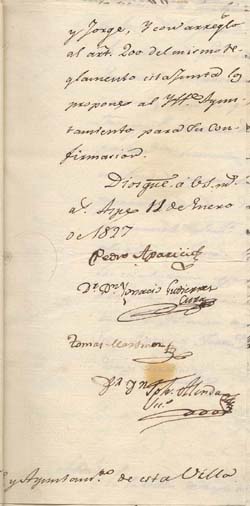 y Jorge, y con arreglo
al art. 200 del mismo re-
glamento esta Junta lo
propone al Ytt.e Ayun-
tamiento para su con-
firmacion.
Dios gue. á VS. m.s
a.s 11 de Enero
de 1827
Pedro Aparicio
Dr. Dn. Ygnacio Gutierrez
Tomas Martinez
y Ayuntam.to de esta Villa